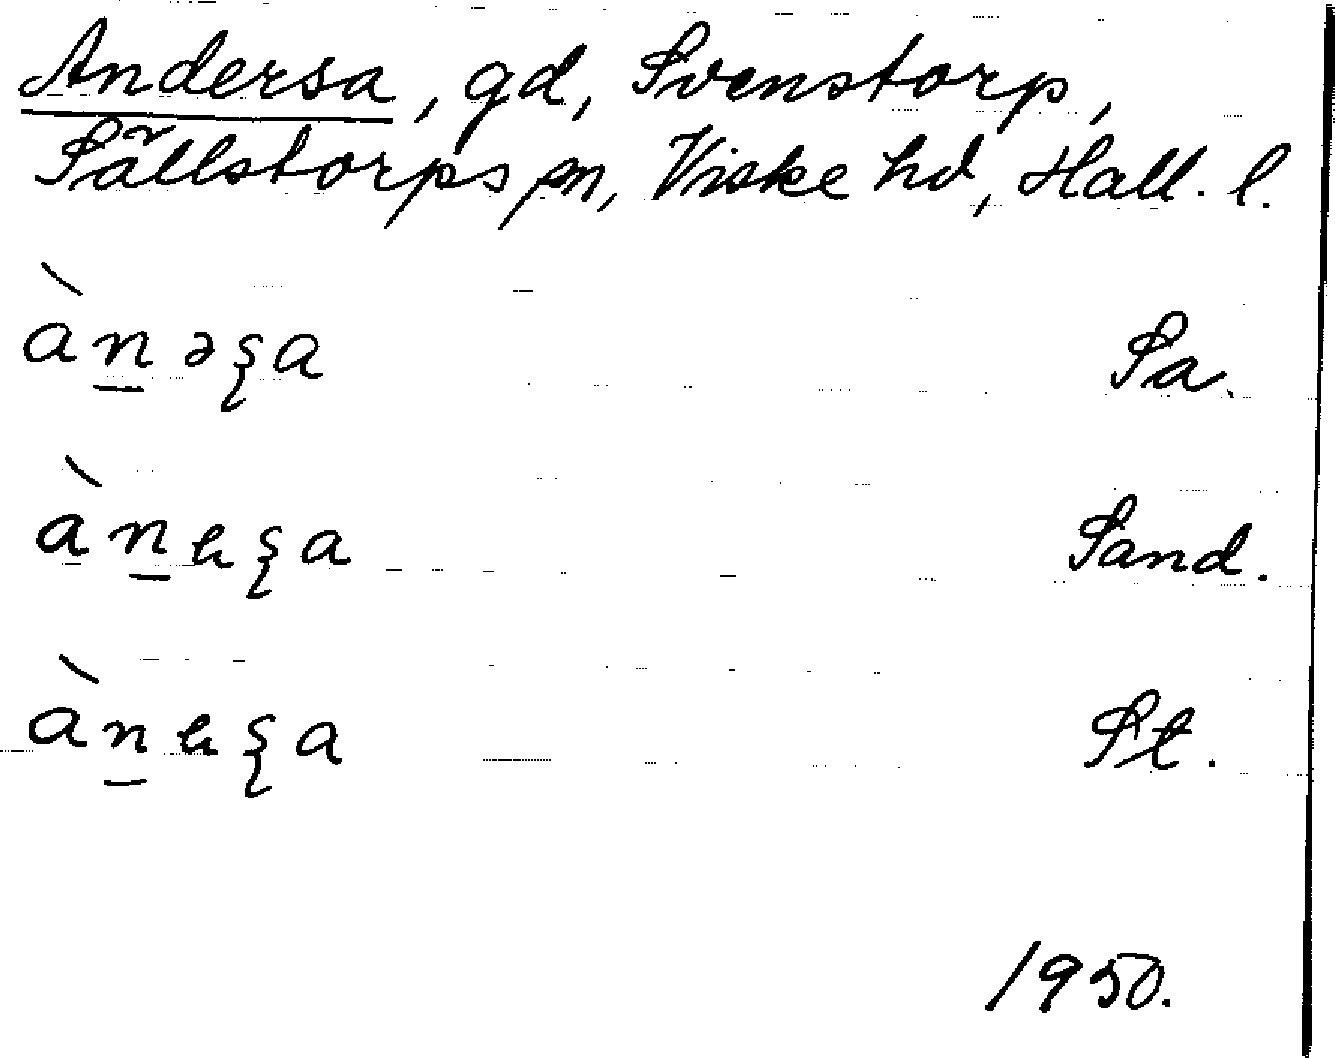 Andersa, gd, Svenstorp,
Sällstorps sn, Viske hd, Hall. l.
àn̲əʂa Sa.
àn̲ꬲʂa Sand.
àn̲ꬲʂa St.
1950.